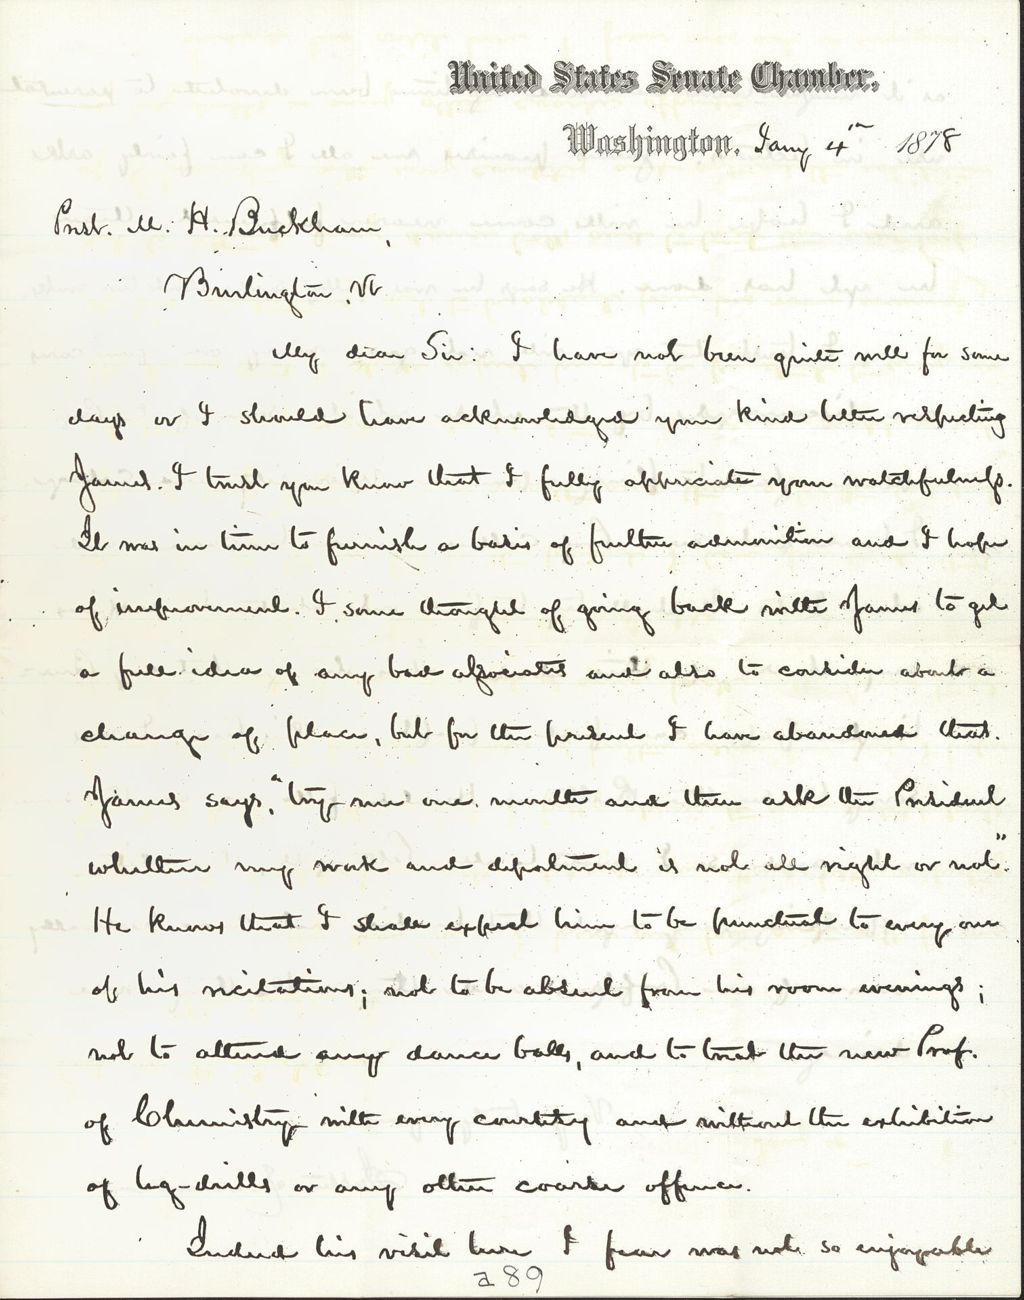 United States Senate Chamber,
Washington, Jany 4th 1878
Prest. M. H. Buckham,
Burlington, Vt
My dear Sir: I have not been quite well for some
days or I should have acknowledged your kind letter respecting
James. I trust you know that I fully appreciate your watchfulness.
It was in time to furnish a basis of further admonition and I hope
of improvement. I some thought of going back with James to get
a full idea of any bad associates and also to consider about a
change of place, but for the present I have abandoned that.
James says, "try me one month and then ask the President
whether my work and deportment is not all right or not".
He knows that I shall expect him to be punctual to every one
of his recitations; not to be absent from his room evenings;
not to attend any dance balls, and to treat the new Prof.
of Chemistry with every courtesy and without the exhibition
of leg-drills or any other coarse offence.
Indeed his visit here I fear was not so enjoyable
a89